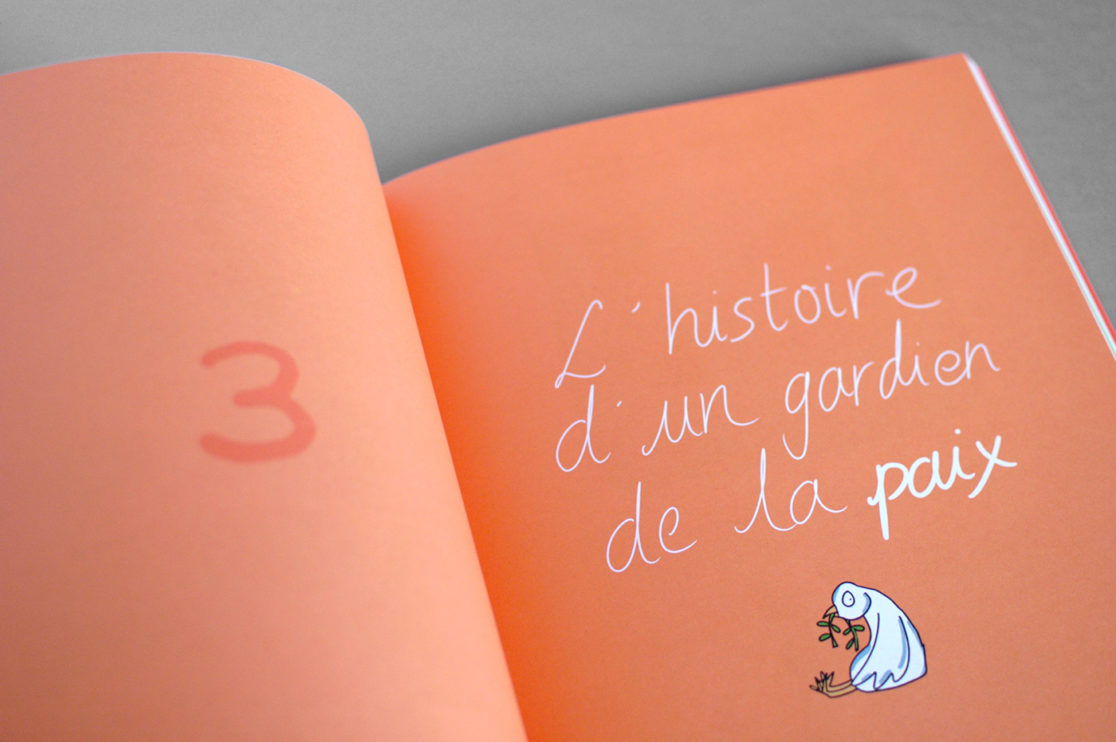 3
L'histoire
d'un gardien
de la paix